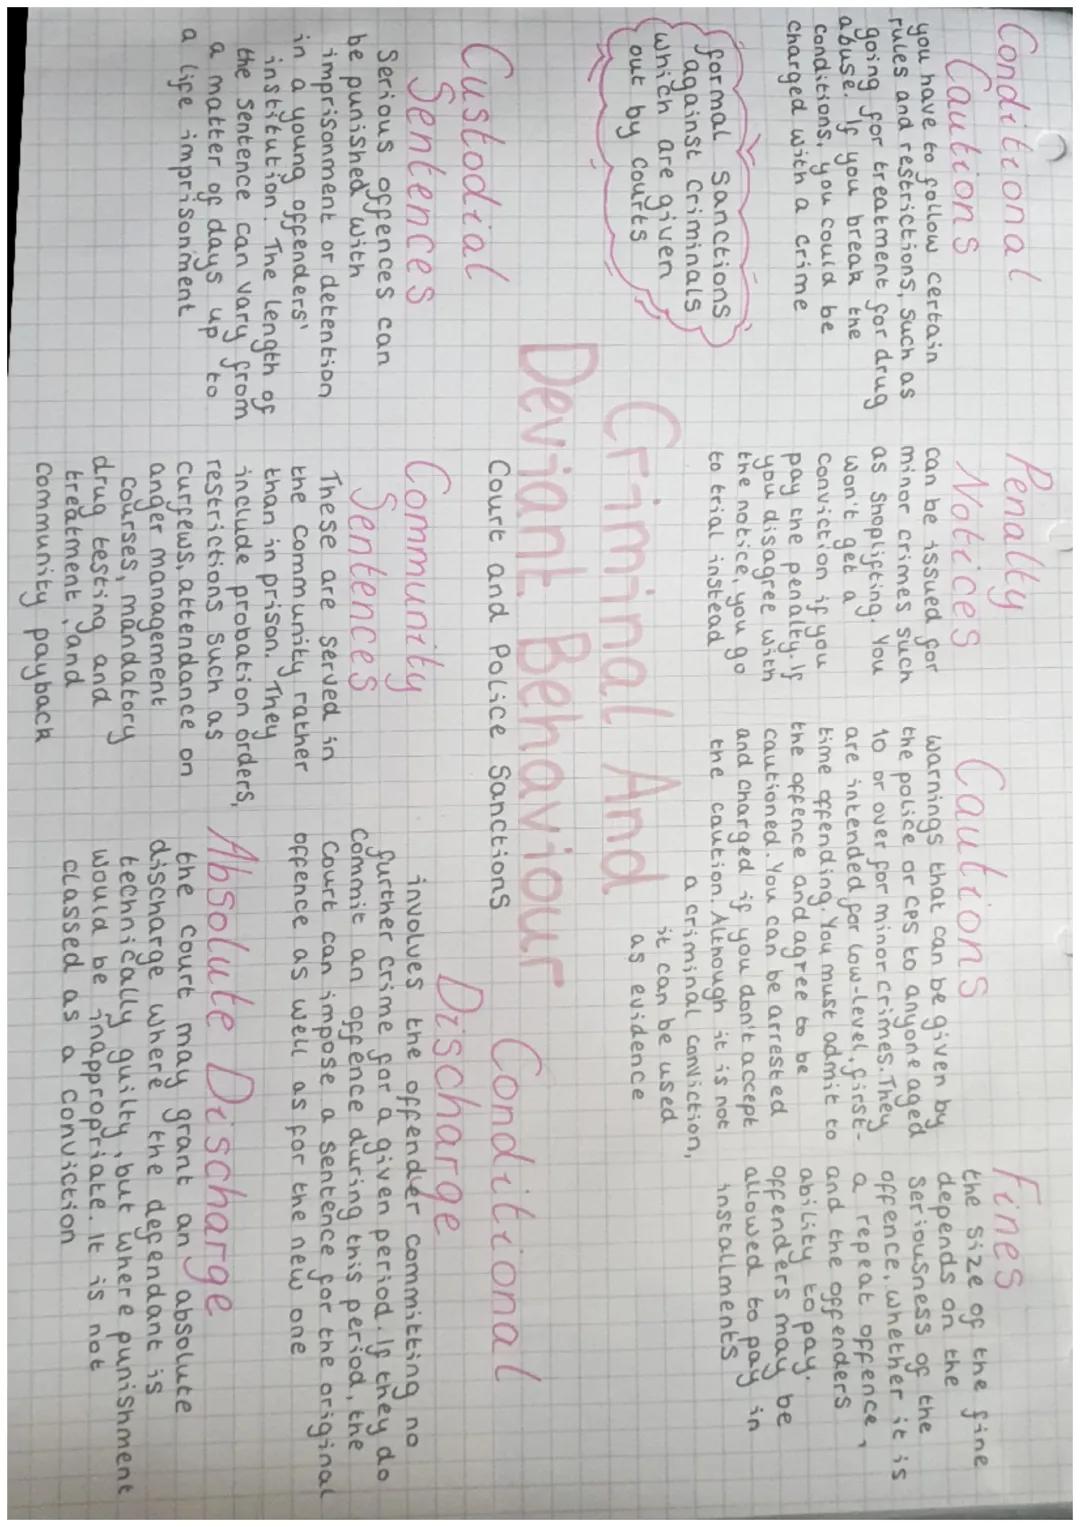 Conditional
Cautions
you have to follow certain
rules and restrictions, such as
going for treatment for drug
abuse. If you break the
conditions, you could be
charged with a crime
Penalty
Notices
can be issued for
minor crimes such
as shoplifting. You
won't get a
conviction if you
pay the penalty. If
you disagree with
the notice, you go
to trial instead
Cautions
warnings that can be given by
the police or CPS to anyone aged
10 or over for minor crimes. They
are intended for low-level, first-
time offending. You must admit to
the offence and agree to be
cautioned. You can be arrested
and charged if you don't accept
the caution. Although it is not
a criminal conviction,
it can be used
as evidence
Fines
the size of the fine
depends on the
seriousness of the
offence, whether it is
a repeat offence,
and the offenders
ability to pay.
offenders may be
allowed to pay in
installments
formal sanctions
against criminals
which are given
out by courts
Criminal And
Deviant Behaviour
Court and Police Sanctions
Custodial
Sentences
Serious offences can
be punished with
imprisonment or detention
in a young offenders'
institution. The length of
the sentence can vary from
a matter of days up to
a life imprisonment
Community
Sentences
These are served in
the community rather
than in prison. They
include probation orders,
restrictions such as
curfews, attendance on
anger management
courses, mandatory
drug testing and
treatment, and
community payback
Conditional
Discharge
involves the offender committing no
further crime for a given period. If they do
commit an offence during this period, the
court can impose a sentence for the original
offence as well as for the new one
Absolute Discharge
the court may grant an absolute
discharge where the defendant is
technically guilty, but where punishment
would be inappropriate. It is not
classed as a conviction